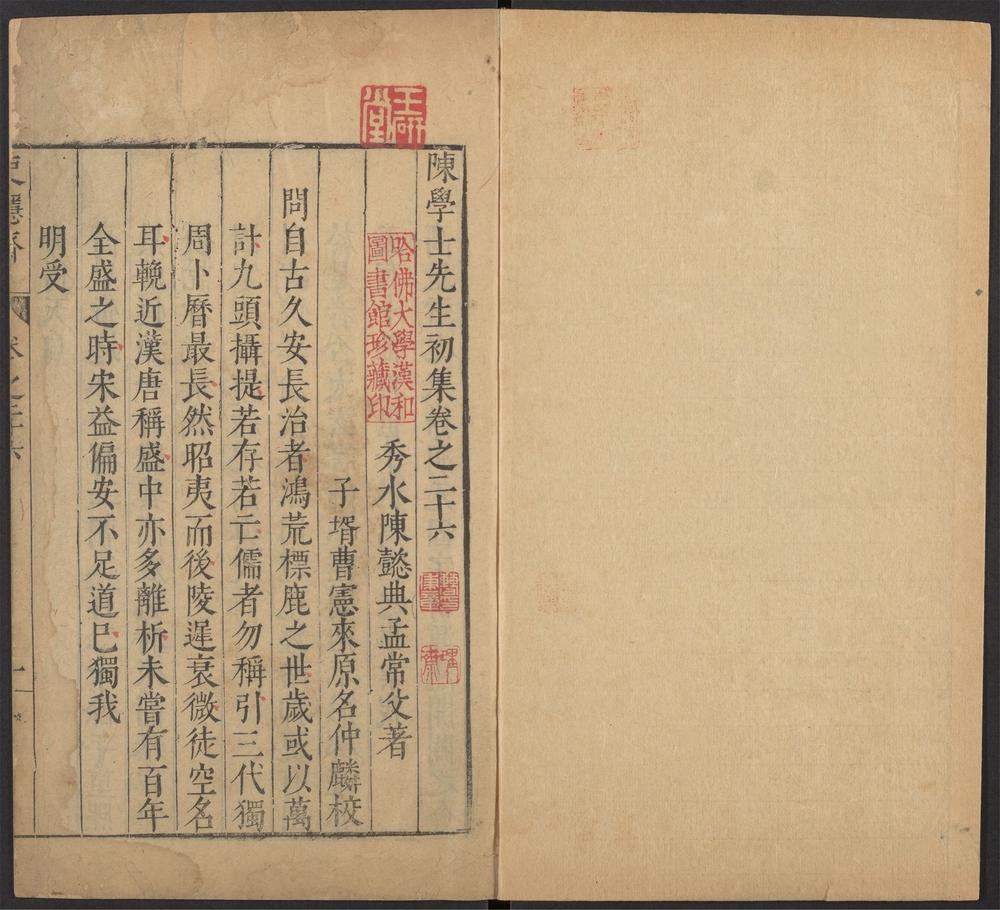 陳學士先生初集卷之二十六
秀水陳懿典孟常父著
子壻曹憲來原名仲麟校
問自古久安長治者鴻荒標鹿之世歲或以萬
計九頭攝提若存若亡儒者勿稱引三代獨
周卜曆最長然昭夷而後陵遲衰微徒空名
耳輓近漢唐稱盛中亦多離析未嘗有百年
全盛之時宋益偏安不足道已獨我
明受
卷之二十六
一
哈佛大學漢和
圖書館珍藏印